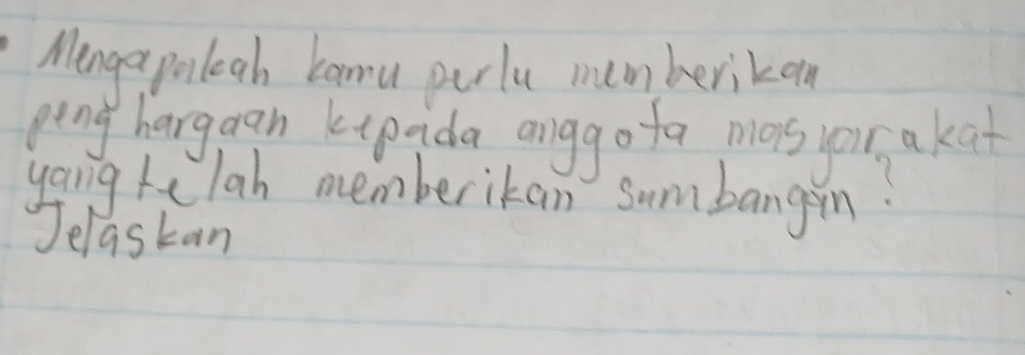 Mengapakah kamu perlu memberikan
penghargaan kepada anggota masyarakat
yang telah memberikan sumbangan?
Jelaskan